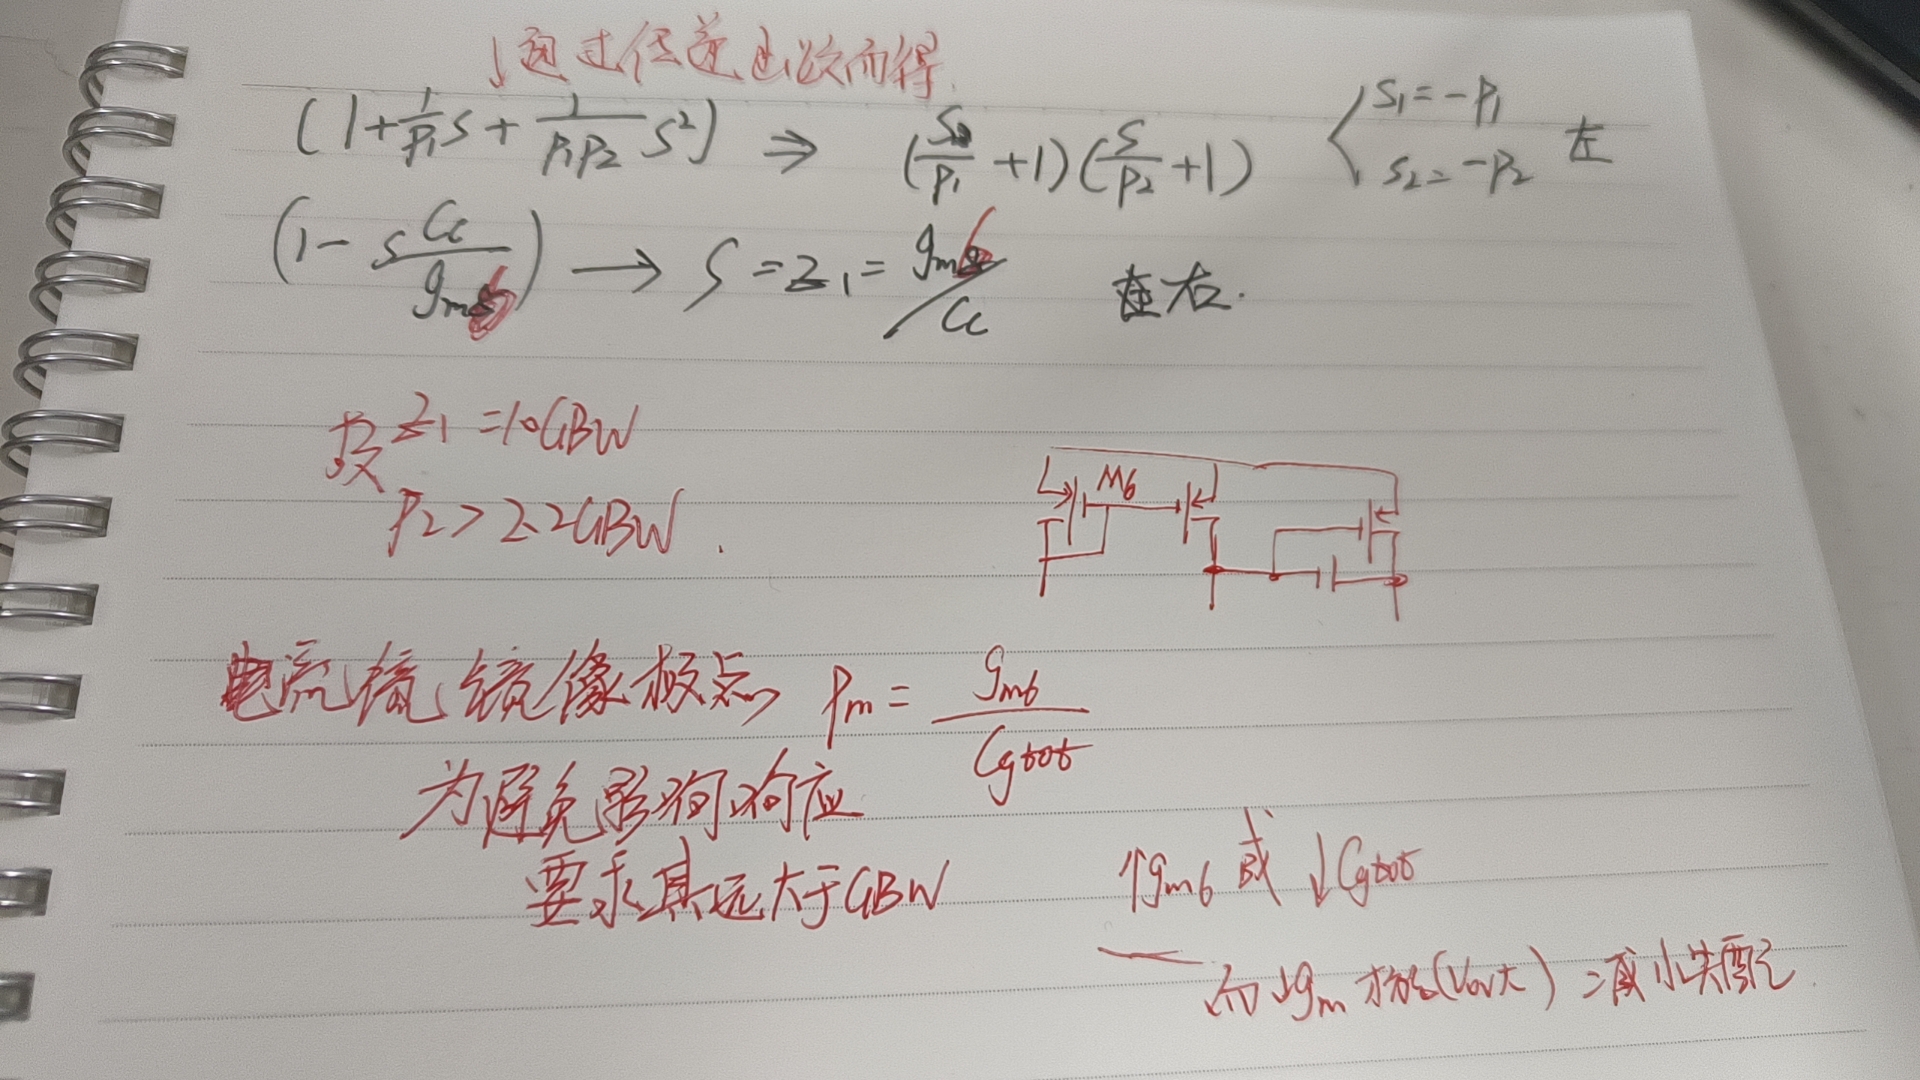 ↓通过任逆出次而得.
(1+\frac{1}{p_1}s+\frac{1}{p_1p_2}s^2) ⇒ (\frac{s}{p_1}+1)(\frac{s}{p_2}+1) { s_1=-p_1 s_2=-p_2 左
(1-s\frac{C_c}{g_{m6}}) → s=z_1=\frac{g_{m6}}{C_c} 在右.
z_1=10GBW
p_2>2.2GBW.
M6
电流镜镜像极点 p_m=\frac{g_{m6}}{C_{gtot}}
为避免影响响应
要求其远大于GBW
↑g_{m6} 或 ↓C_{gtot}
而↓g_m 才能(Vov大)减小失配.